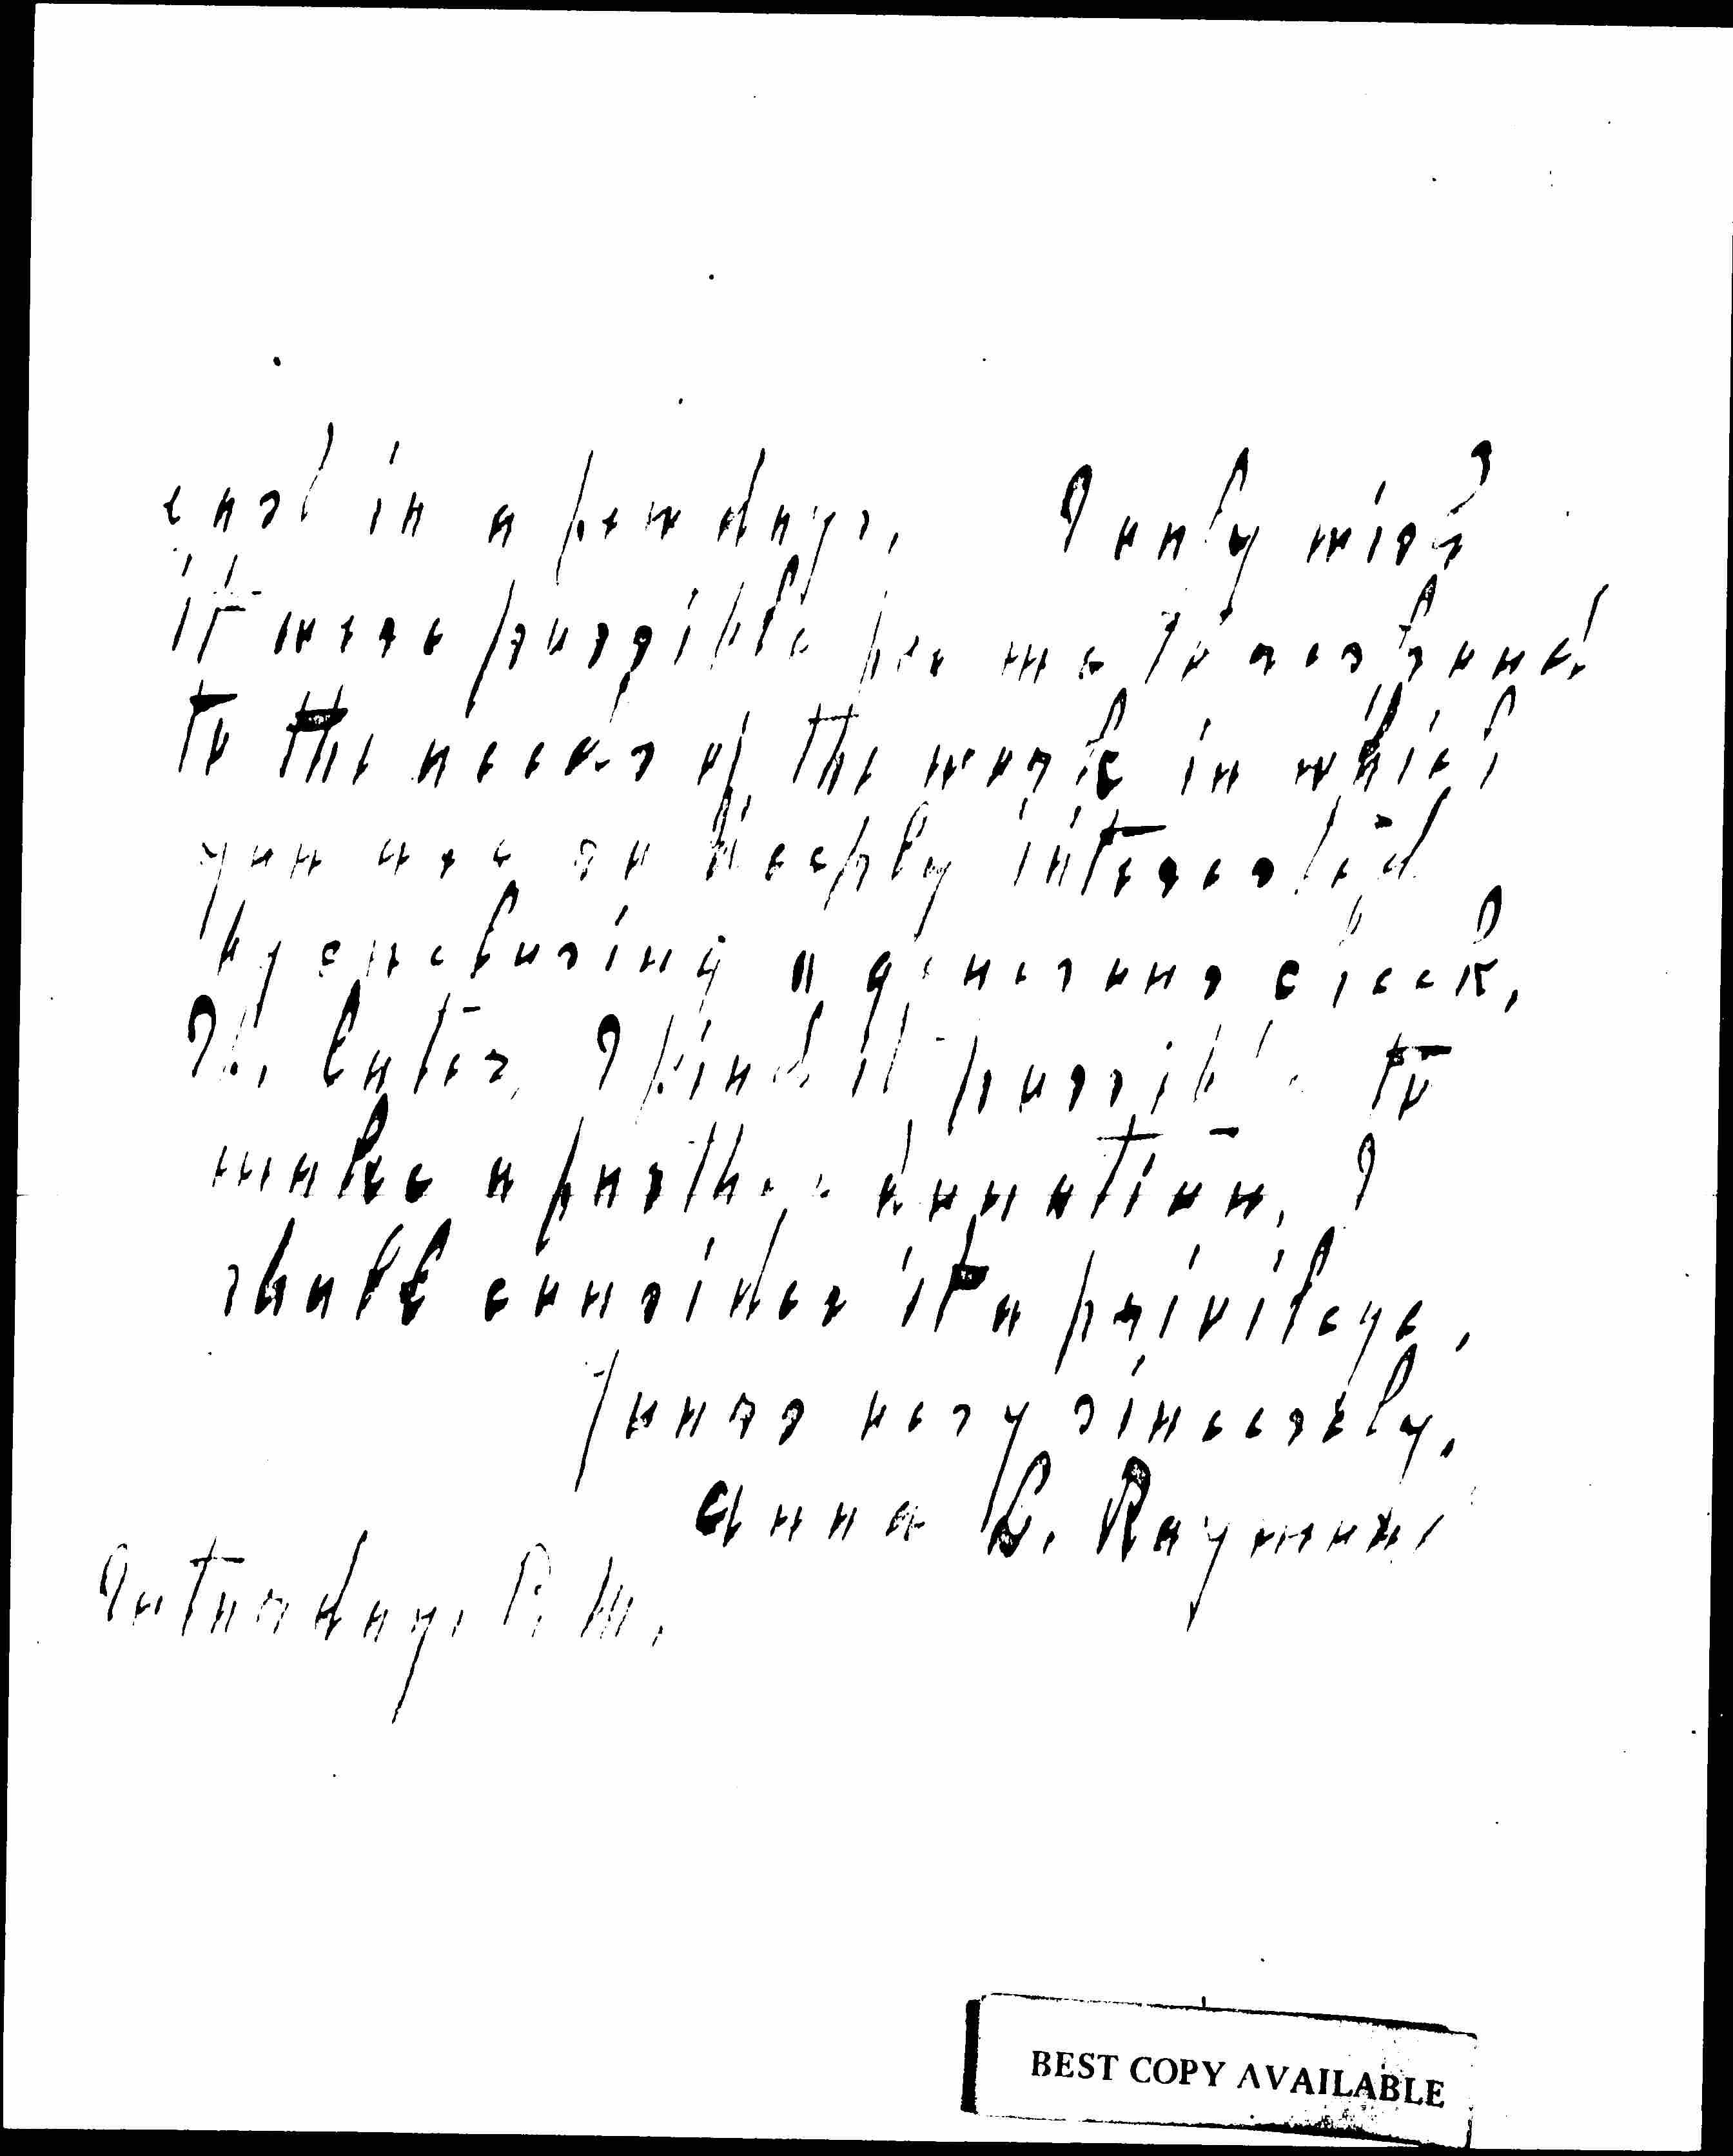 east in a few days. I only wish
it were possible for me to respond
to the needs of the work in which
you are so deeply interested
by enclosing a generous check.
If, later, I find it possible to
make a further donation, I
shall consider it a privilege.
Yours very sincerely,
Anna B. Raymond
Saturday, P. M.
BEST COPY AVAILABLE